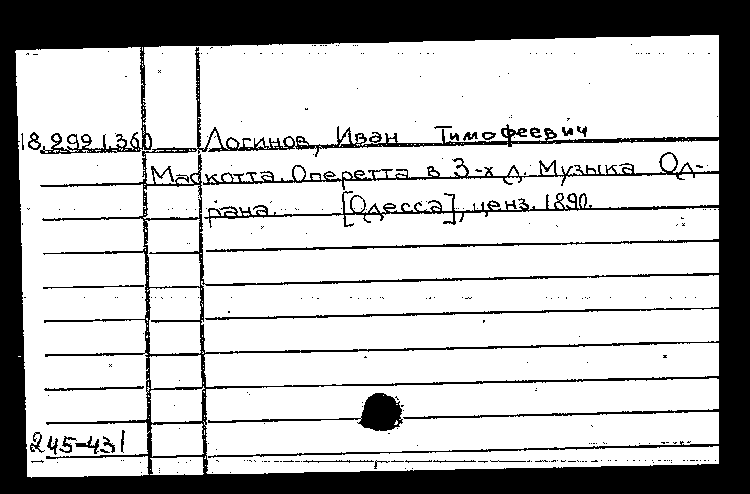 18.292.1.360 Логинов, Иван Тимофеевич
Маскотта. Оперетта в 3-х д. Музыка Од-
рана. [Одесса], ценз. 1890.
245-431